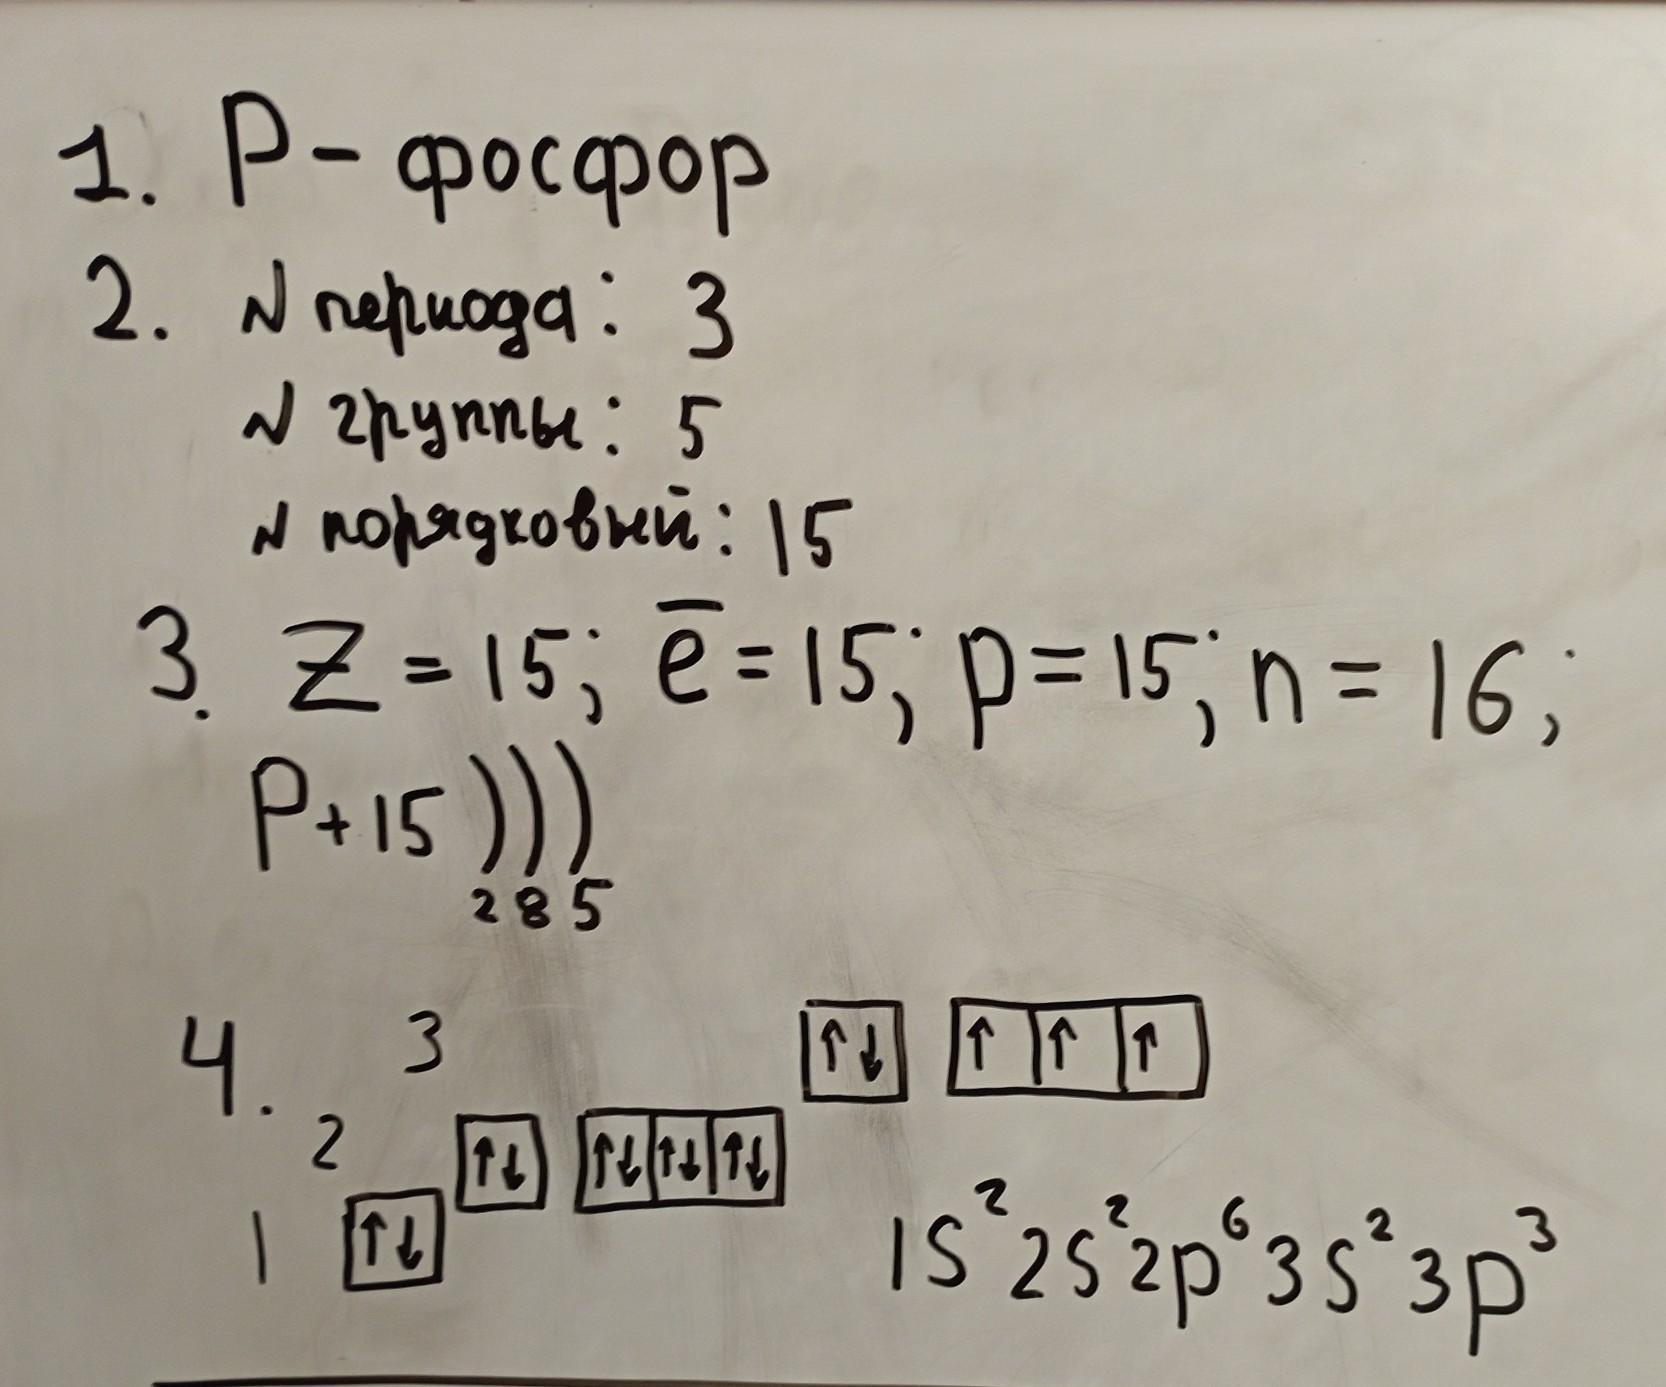 1. P - фосфор
2. N периода: 3
N группы: 5
N порядковый: 15
3. Z = 15; e̅ = 15; p = 15; n = 16;
P + 15 ) ) )
2 8 5
4. 3 ↑↓ ↑ ↑ ↑
2 ↑↓ ↑↓ ↑↓ ↑↓
1 ↑↓
1S² 2S² 2p⁶ 3S² 3p³